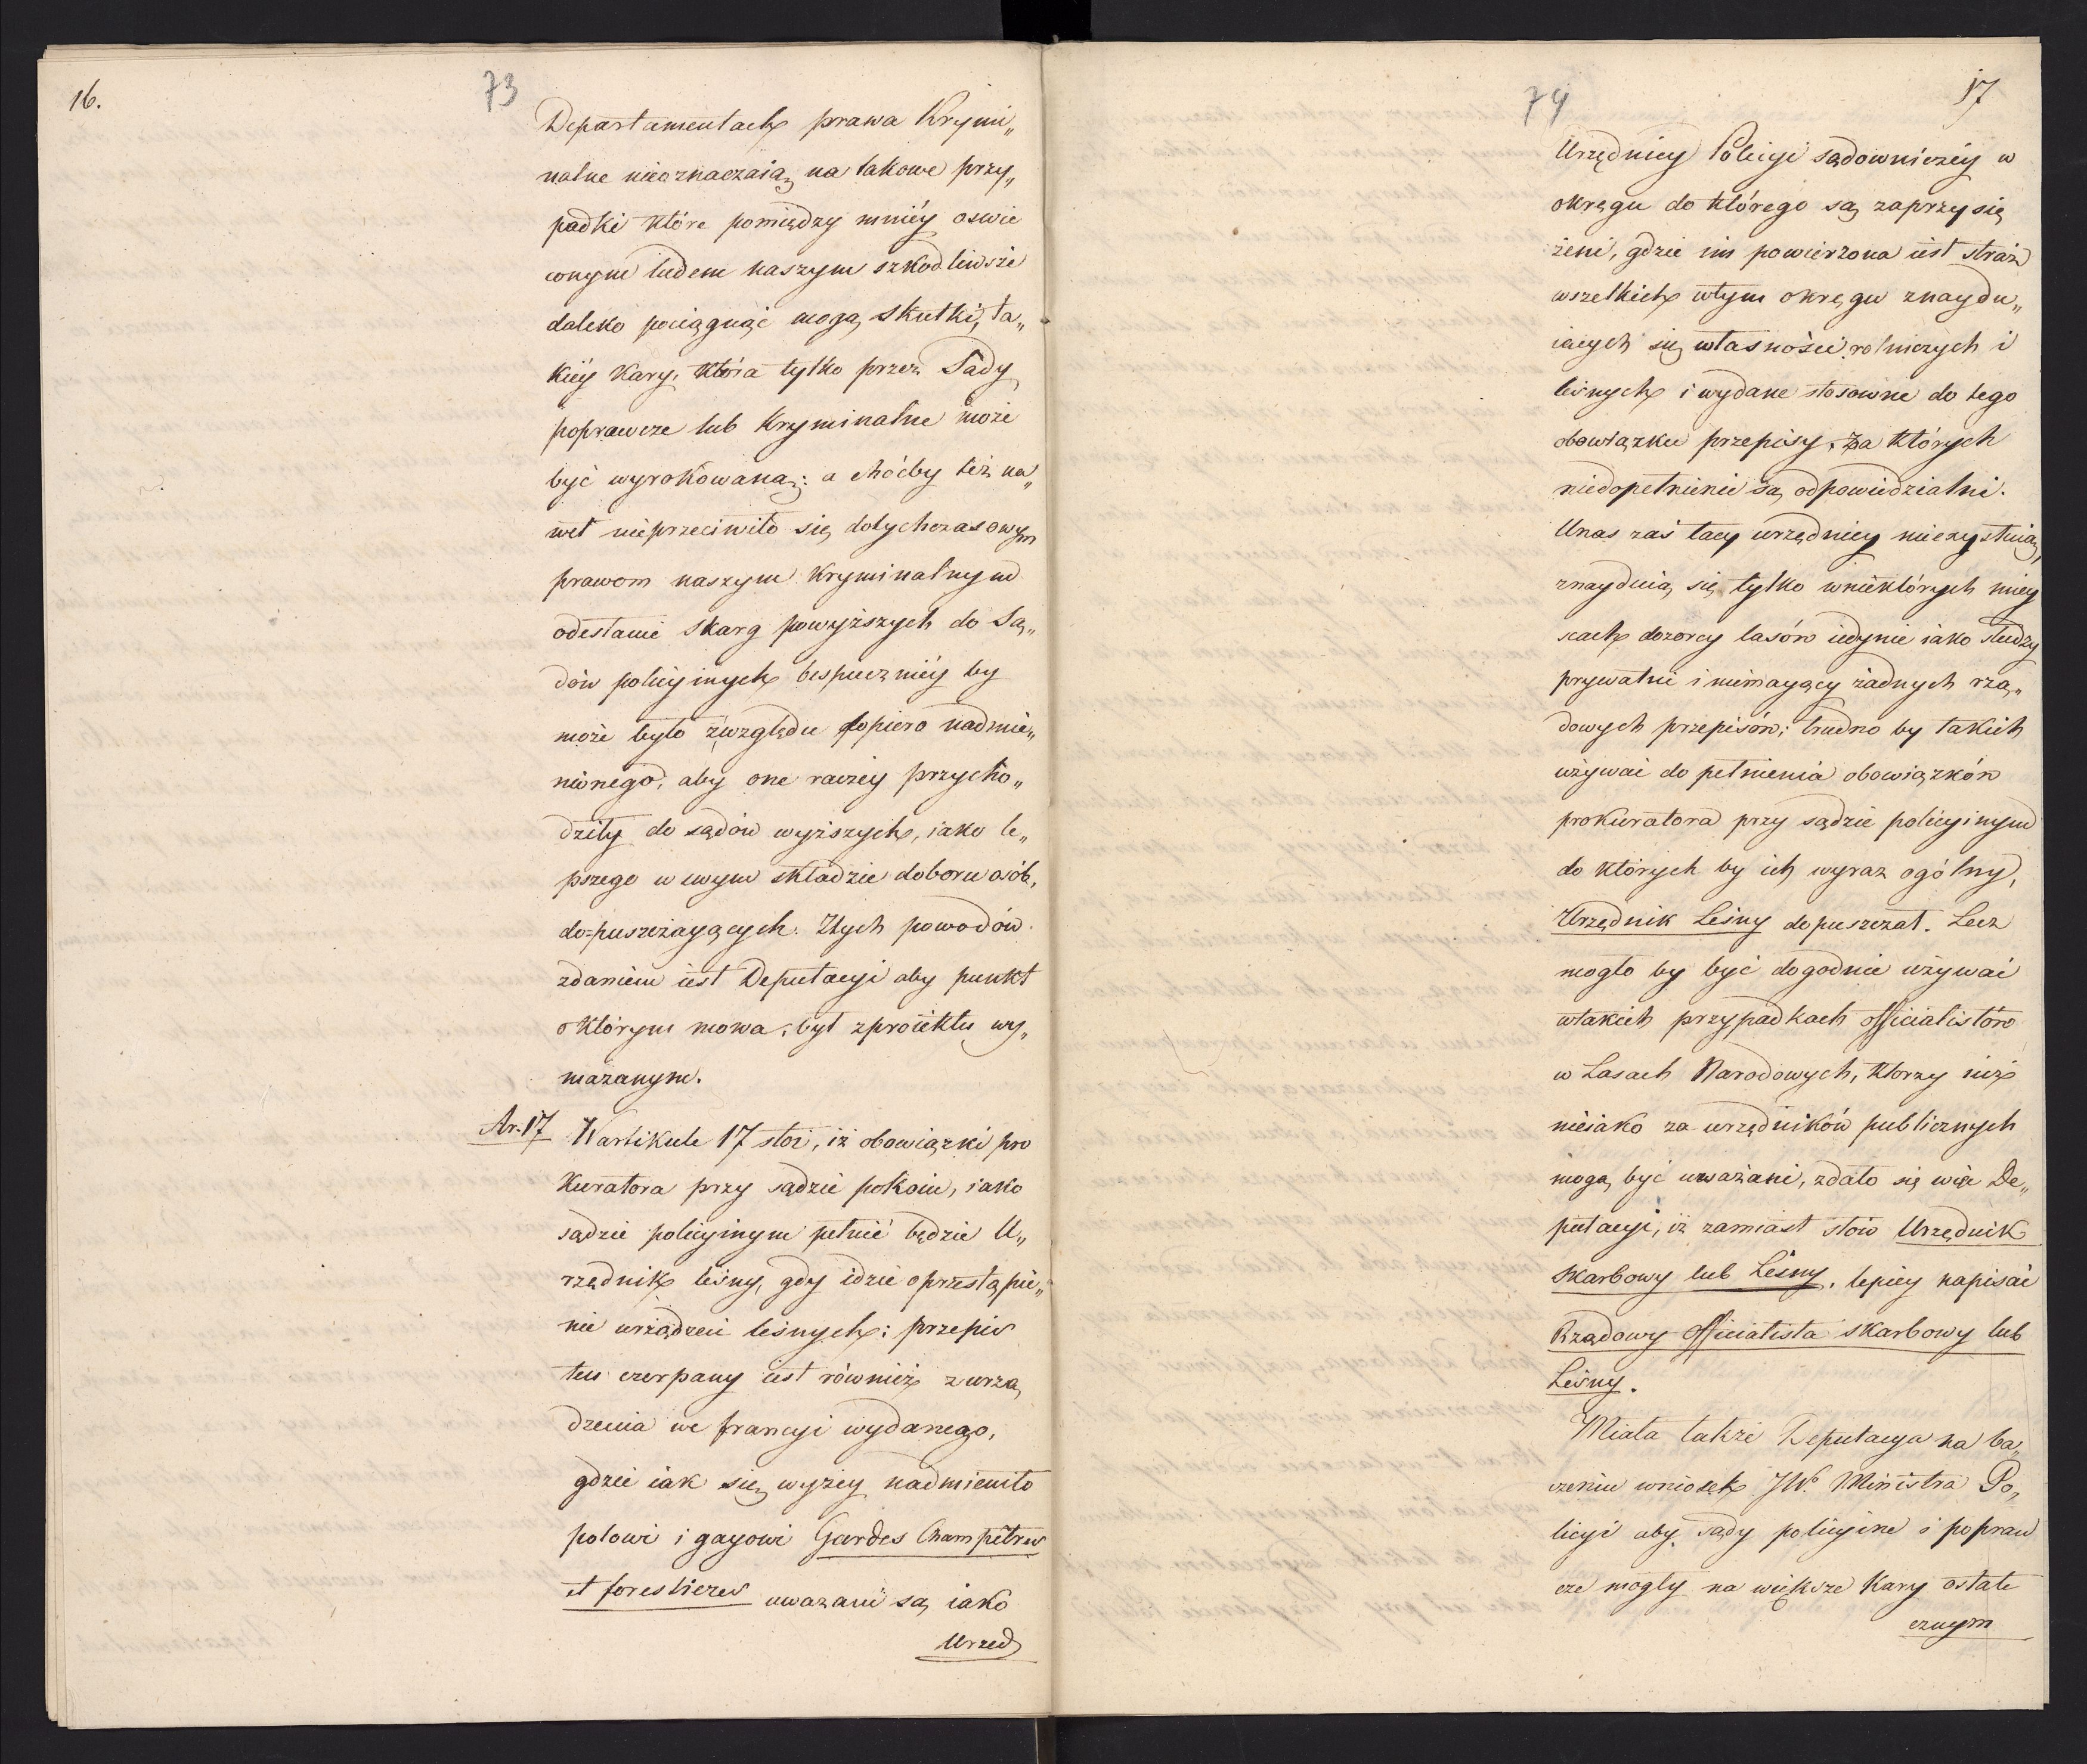 16.
73
Departamentach prawa Krymi„
nalne nieoznaczaią na takowe przy„
padki które pomiędzy mniéy oswie
conym ludem naszym szkodliwsze
daleko pociągnąć mogą skutki, ta„
kiéy Kary, która tylko przez Sądy
poprawcze lub Kryminalne może
być wyrokowaną; a choćby też na„
wet nieprzeciwiło się dotychczasowym
prawom naszym Kryminalnym
odesłanie skarg powyższych do Są„
dów policyinych bespieczniéy by
może było zwzględu dopiero nadmie„
nionego, aby one raczéy przycho„
dziły do sądów wyższych, iako le„
pszego w swym składzie doboru osób,
dopuszczaiących. Ztych powodów
zdaniem iest Deputacyi aby punkt
o którym mowa, był zproiektu wy„
mazanym.
Ar. 17 Wartikule 17 stoi, iż obowiązki pro
Kuratora przy sądzie pokoiu, iako
sądzie policyinym pełnić będzie U„
rzędnik leśny, gdy idzie o przestąpie„
nie urządzeń leśnych: przepis
ten czerpany iest również z urzą
dzenia we francyi wydanego,
gdzie iak się wyżey nadmieniło
polowi i gayowi Gardes Champêtres
et forestieres uwazani są iako
Urzęd
74
17
Urzędnicy Policyi sądowniczéy w
okręgu do którego są zaprzysię
żeni, gdzie im powierzona iest straż
wszelkich wtym okręgu znaydu„
iących się własności rolniczych i
leśnych i wydane stosowne do tego
obowiązku przepisy, za których
niedopełnienie są odpowiedzialni.
Unas zaś tacy urzędnicy nieexystuią,
znayduią się tylko wniektórych miey
scach dozorcy lasów iedynie iako słudzy
prywatni i niemaiący żadnych rzą„
dowych przepisów; trudno by takich
używać do pełnienia obowiązków
prokuratora przy sądzie policyinym
do których by ich wyraz ogólny,
Urzędnik Leśny dopuszczał. Lecz
mogło by być dogodnie używać
wtakich przypadkach officialistów
w Lasach Narodowych, którzy niż
nieiako za urzędników publicznych
mogą być uważani, zdało się więc De„
putacyi, iż zamiast słów Urzędnik
skarbowy lub Leśny, lepiey napisać
Rządowy officialista skarbowy lub
Leśny.
Miała także Deputacya na ba„
czeniu wniosek JW. Ministra Po„
licyi aby sądy policyine i popraw
cze mogły na większe Kary ostate
cznym